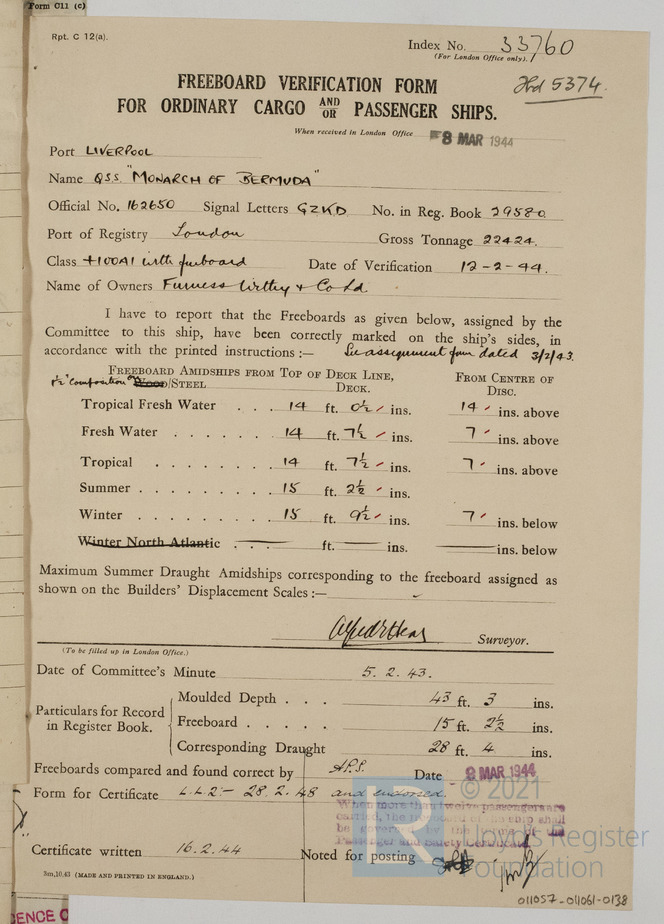 Form C11 (c)
Rpt. C 12(a).
Index No. 33760
(For London Office only).
Hbd 5374.
FREEBOARD VERIFICATION FORM
FOR ORDINARY CARGO AND/OR PASSENGER SHIPS.
When received in London Office 8 MAR 1944
Port LIVERPOOL
Name QSS "MONARCH OF BERMUDA"
Official No. 162650 Signal Letters GZKD No. in Reg. Book 29580
Port of Registry London Gross Tonnage 22424.
Class +100A1 with freeboard Date of Verification 12-2-44.
Name of Owners Furness Withy & Co Ld
I have to report that the Freeboards as given below, assigned by the
Committee to this ship, have been correctly marked on the ship's sides, in
accordance with the printed instructions:— See assignment form dated 3/2/43.
FREEBOARD AMIDSHIPS FROM TOP OF DECK LINE, FROM CENTRE OF
½" composition on WOOD/STEEL DECK. DISC.
Tropical Fresh Water . . . 14 ft. 0½ ins. 14 ins. above
Fresh Water . . . . . . 14 ft. 7½ ins. 7 ins. above
Tropical . . . . . . . 14 ft. 7½ ins. 7 ins. above
Summer . . . . . . . . 15 ft. 2½ ins.
Winter . . . . . . . . 15 ft. 9½ ins. 7 ins. below
Winter North Atlantic . . . ft. ins. ins. below
Maximum Summer Draught Amidships corresponding to the freeboard assigned as
shown on the Builders' Displacement Scales:—
Surveyor.
(To be filled up in London Office.)
Date of Committee's Minute 5.2.43.
Particulars for Record in Register Book.
Moulded Depth . . . 43 ft. 3 ins.
Freeboard . . . . . 15 ft. 2½ ins.
Corresponding Draught 28 ft. 4 ins.
Freeboards compared and found correct by A.P.S. Date 9 MAR 1944
Form for Certificate L.L.2 - 28.2.48 and endorsed.
When more than twelve passengers are
carried, the freeboard of the ship shall
be governed by the
Passenger and Safety Certificate
Certificate written 16.2.44 Noted for posting
3m,10.43 (MADE AND PRINTED IN ENGLAND.)
© 2021
Lloyd's Register
Foundation
011057-011061-0138
ENCE C